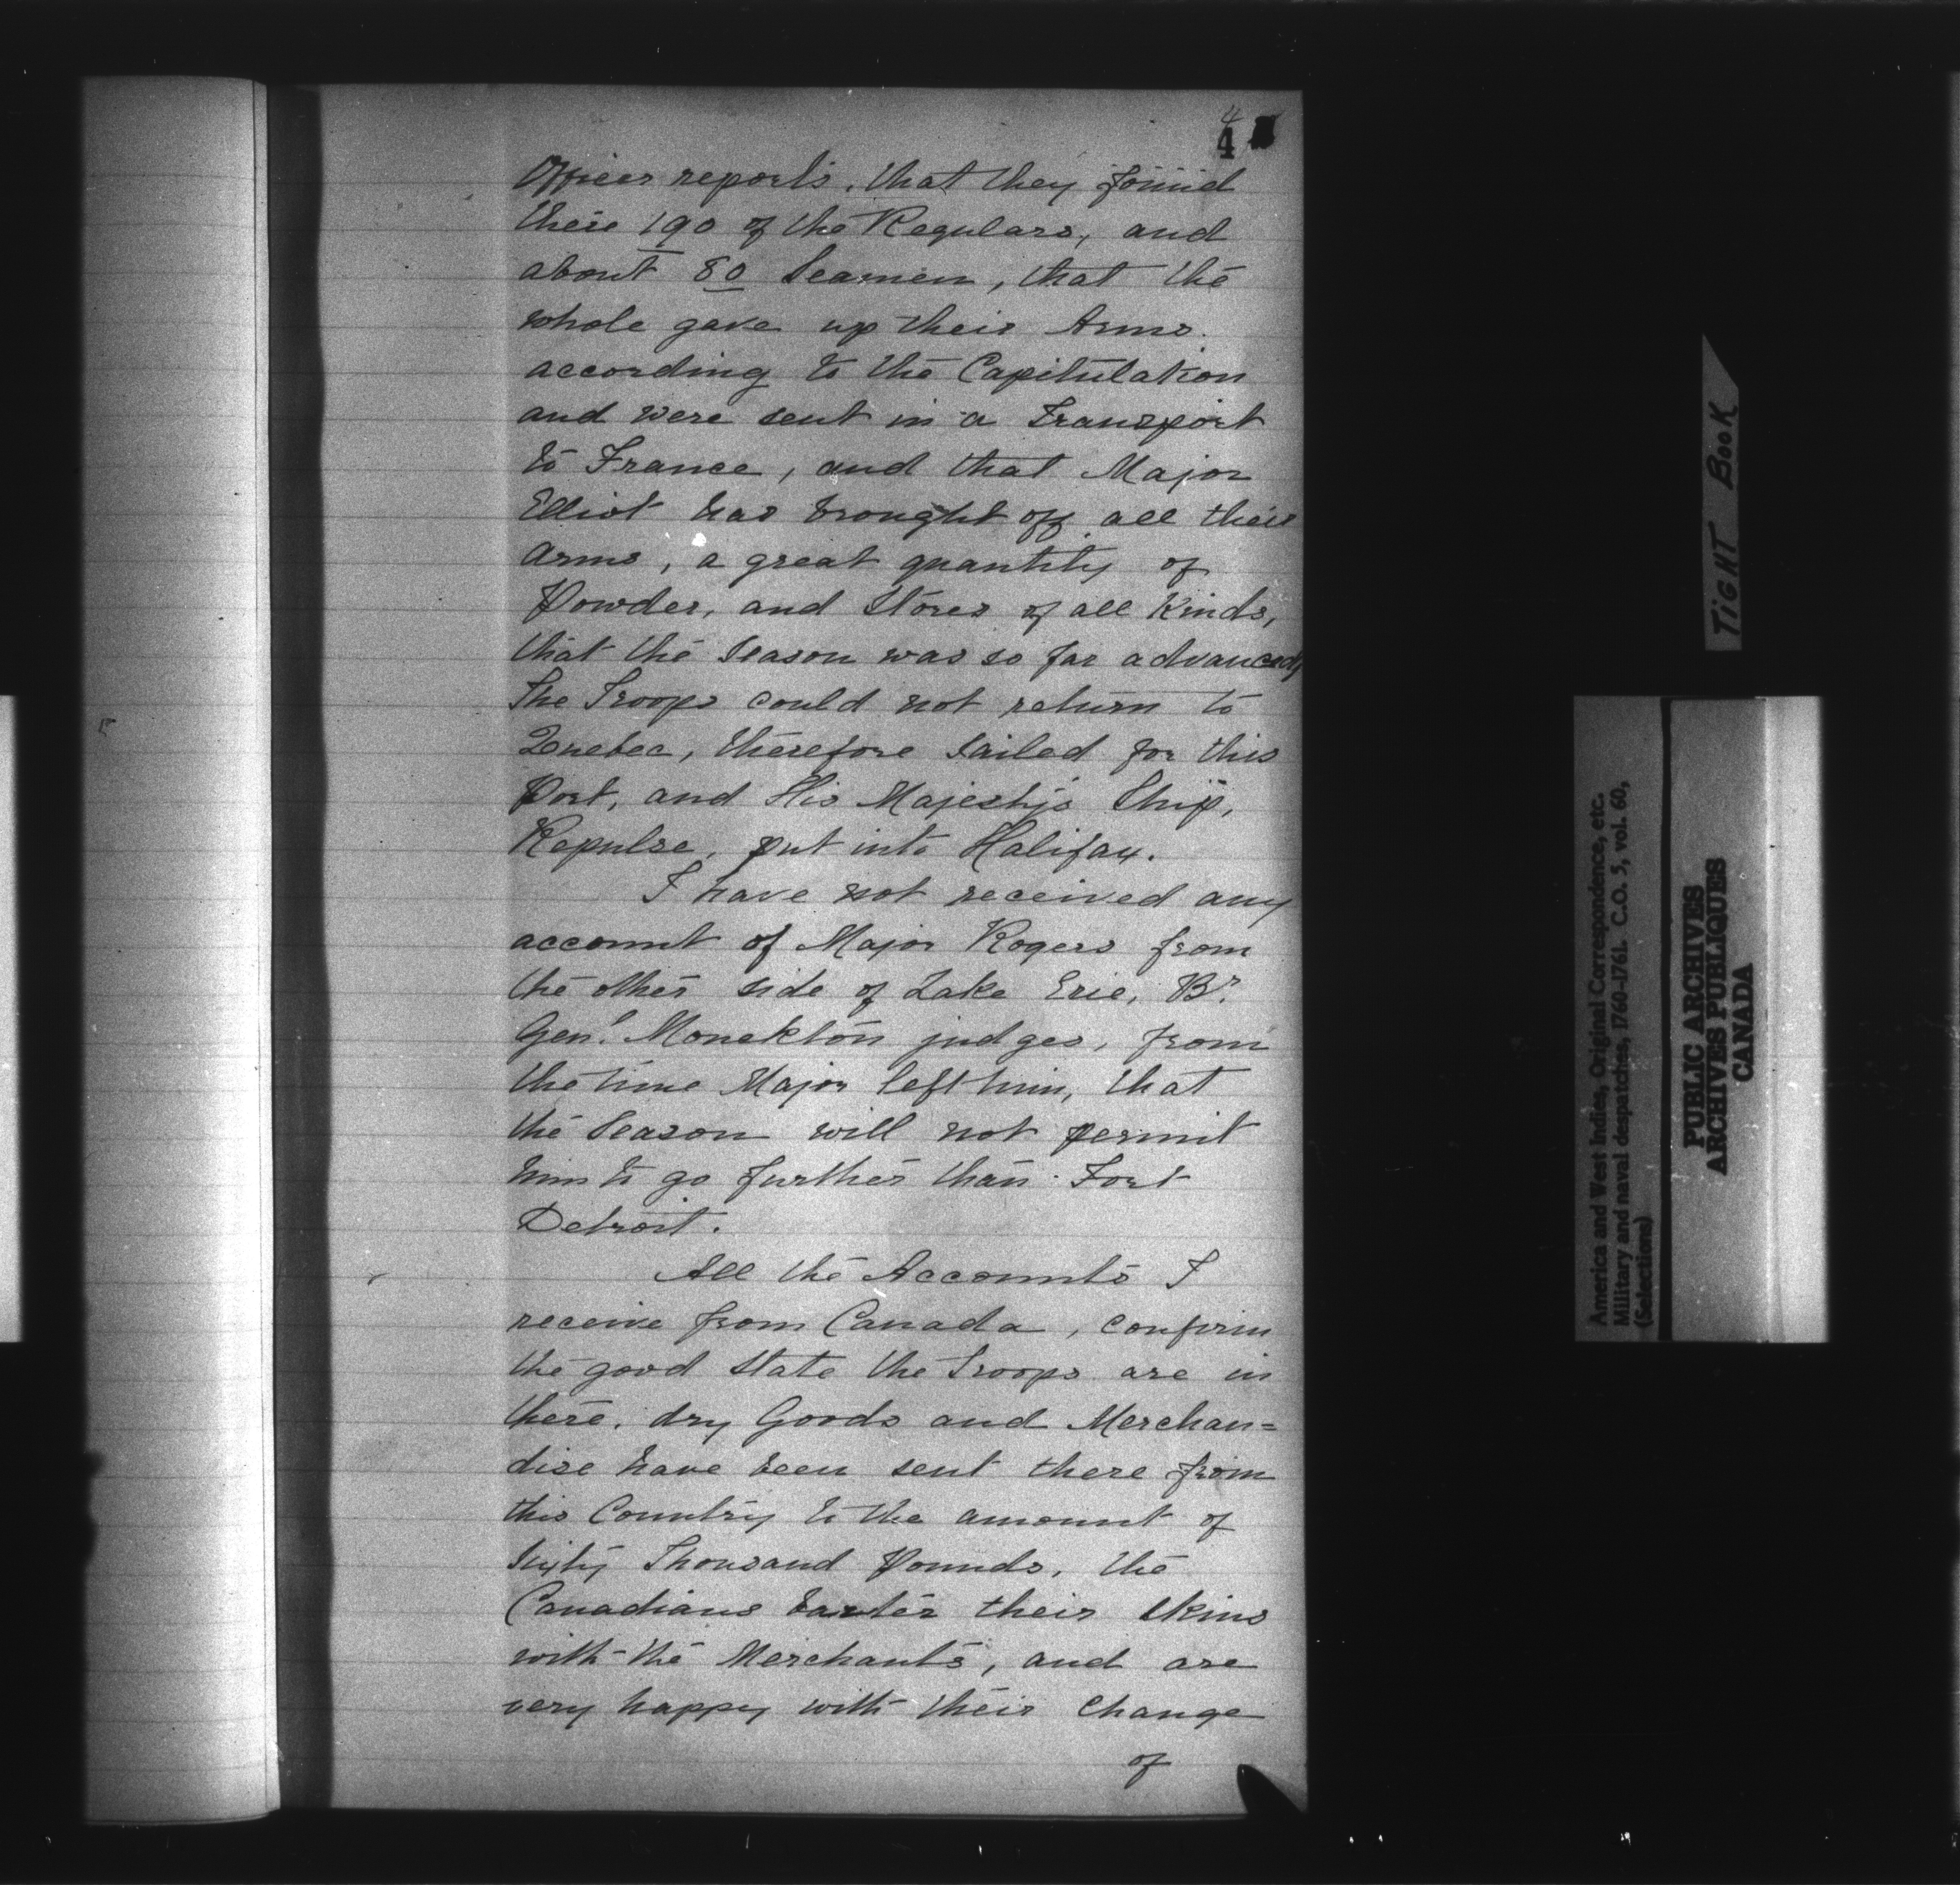 4
4
Officer reports, that they found
there 190 of the Regulars, and
about 80 Seamen, that the
whole gave up their Arms
according to the Capitulation
and were sent in a Transport
to France, and that Major
Elliot has brought off all their
Arms, a great quantity of
Powder, and Stores of all Kinds,
that the Season was so far advanced,
The Troops could not return to
Quebec, therefore sailed for this
Port, and His Majesty's Ship,
Repulse, put into Halifax.
I have not received any
account of Major Rogers from
the other side of Lake Erie, Br.
Genl. Monckton judges, from
the time Major left him, that
the Season will not permit
him to go further than Fort
Detroit.
All the Accounts I
receive from Canada, confirm
the good State the Troops are in
there. dry Goods and Merchan=
dise have been sent there from
this Country to the amount of
Sixty Thousand Pounds, the
Canadians barter their Skins
with the Merchants, and are
very happy with their Change
of
TIGHT BOOK
America and West Indies, Original Correspondence, etc.
Military and naval despatches, 1760-1761. C.O. 5, vol. 60,
(Selections)
PUBLIC ARCHIVES
ARCHIVES PUBLIQUES
CANADA